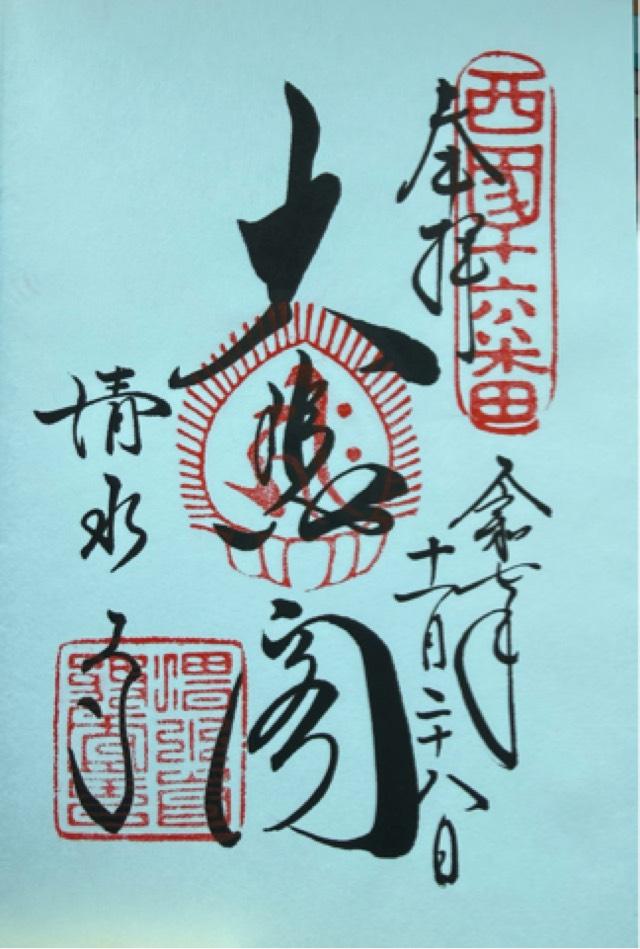 西國十六番
奉拝
令和七年
十一月二十八日
大悲閣
清水寺